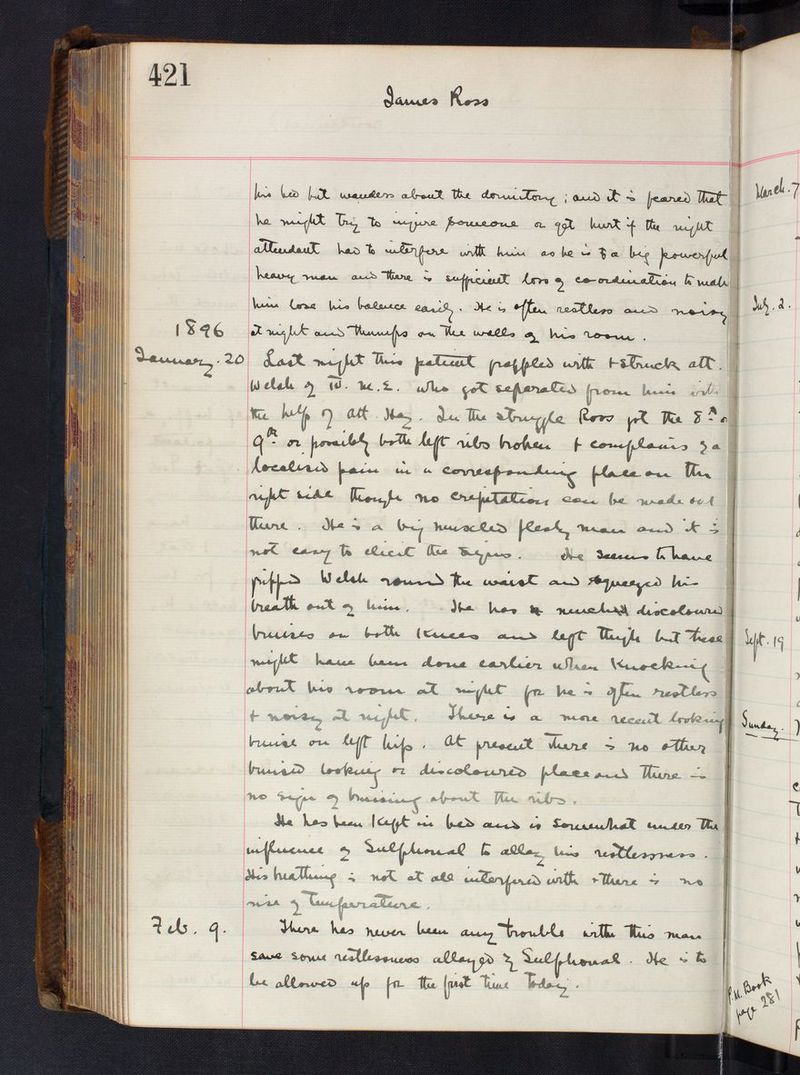 421
James Ross
his bed but wanders about the dormitory; and it is feared that
he might try to injure someone or get hurt if the night
attendant had to interfere with him as he is a big powerful
heavy man and there is sufficient loss of co-ordination to make
him lose his balance easily. He is often restless and noisy
1896 at night and thumps on the walls of his room.
January. 20 Last night this patient grappled with & struck att.
Welsh of W. M.E. who got separated from him with
the help of att. Hay. In the struggle Ross got the 8th or
9th or possibly both left ribs broken & complains of a
localised pain in a corresponding place on the
right side though no crepitations can be made out
there. He is a big muscled fleshy man and it is
not easy to elicit the signs. He seems to have
gripped Welsh round the waist and squeezed his
breath out of him. He has much discoloured
bruises on both knees and left thigh but these
might have been done earlier when knocking
about his room at night for he is often restless
& noisy at night. There is a more recent looking
bruise on left hip. At present there is no other
bruised looking or discoloured place and there is
no sign of bruising about the ribs.
He has been kept in bed and is somewhat under the
influence of Sulphonal to allay his restlessness.
His breathing is not at all interfered with & there is no
rise of temperature.
Feb. 9. There has never been any trouble with this man
save some restlessness allayed by Sulphonal. He is to
be allowed up for the first time today.
March. 7
July. 2.
Sept. 19
Sunday.
P.M. Book
page 281